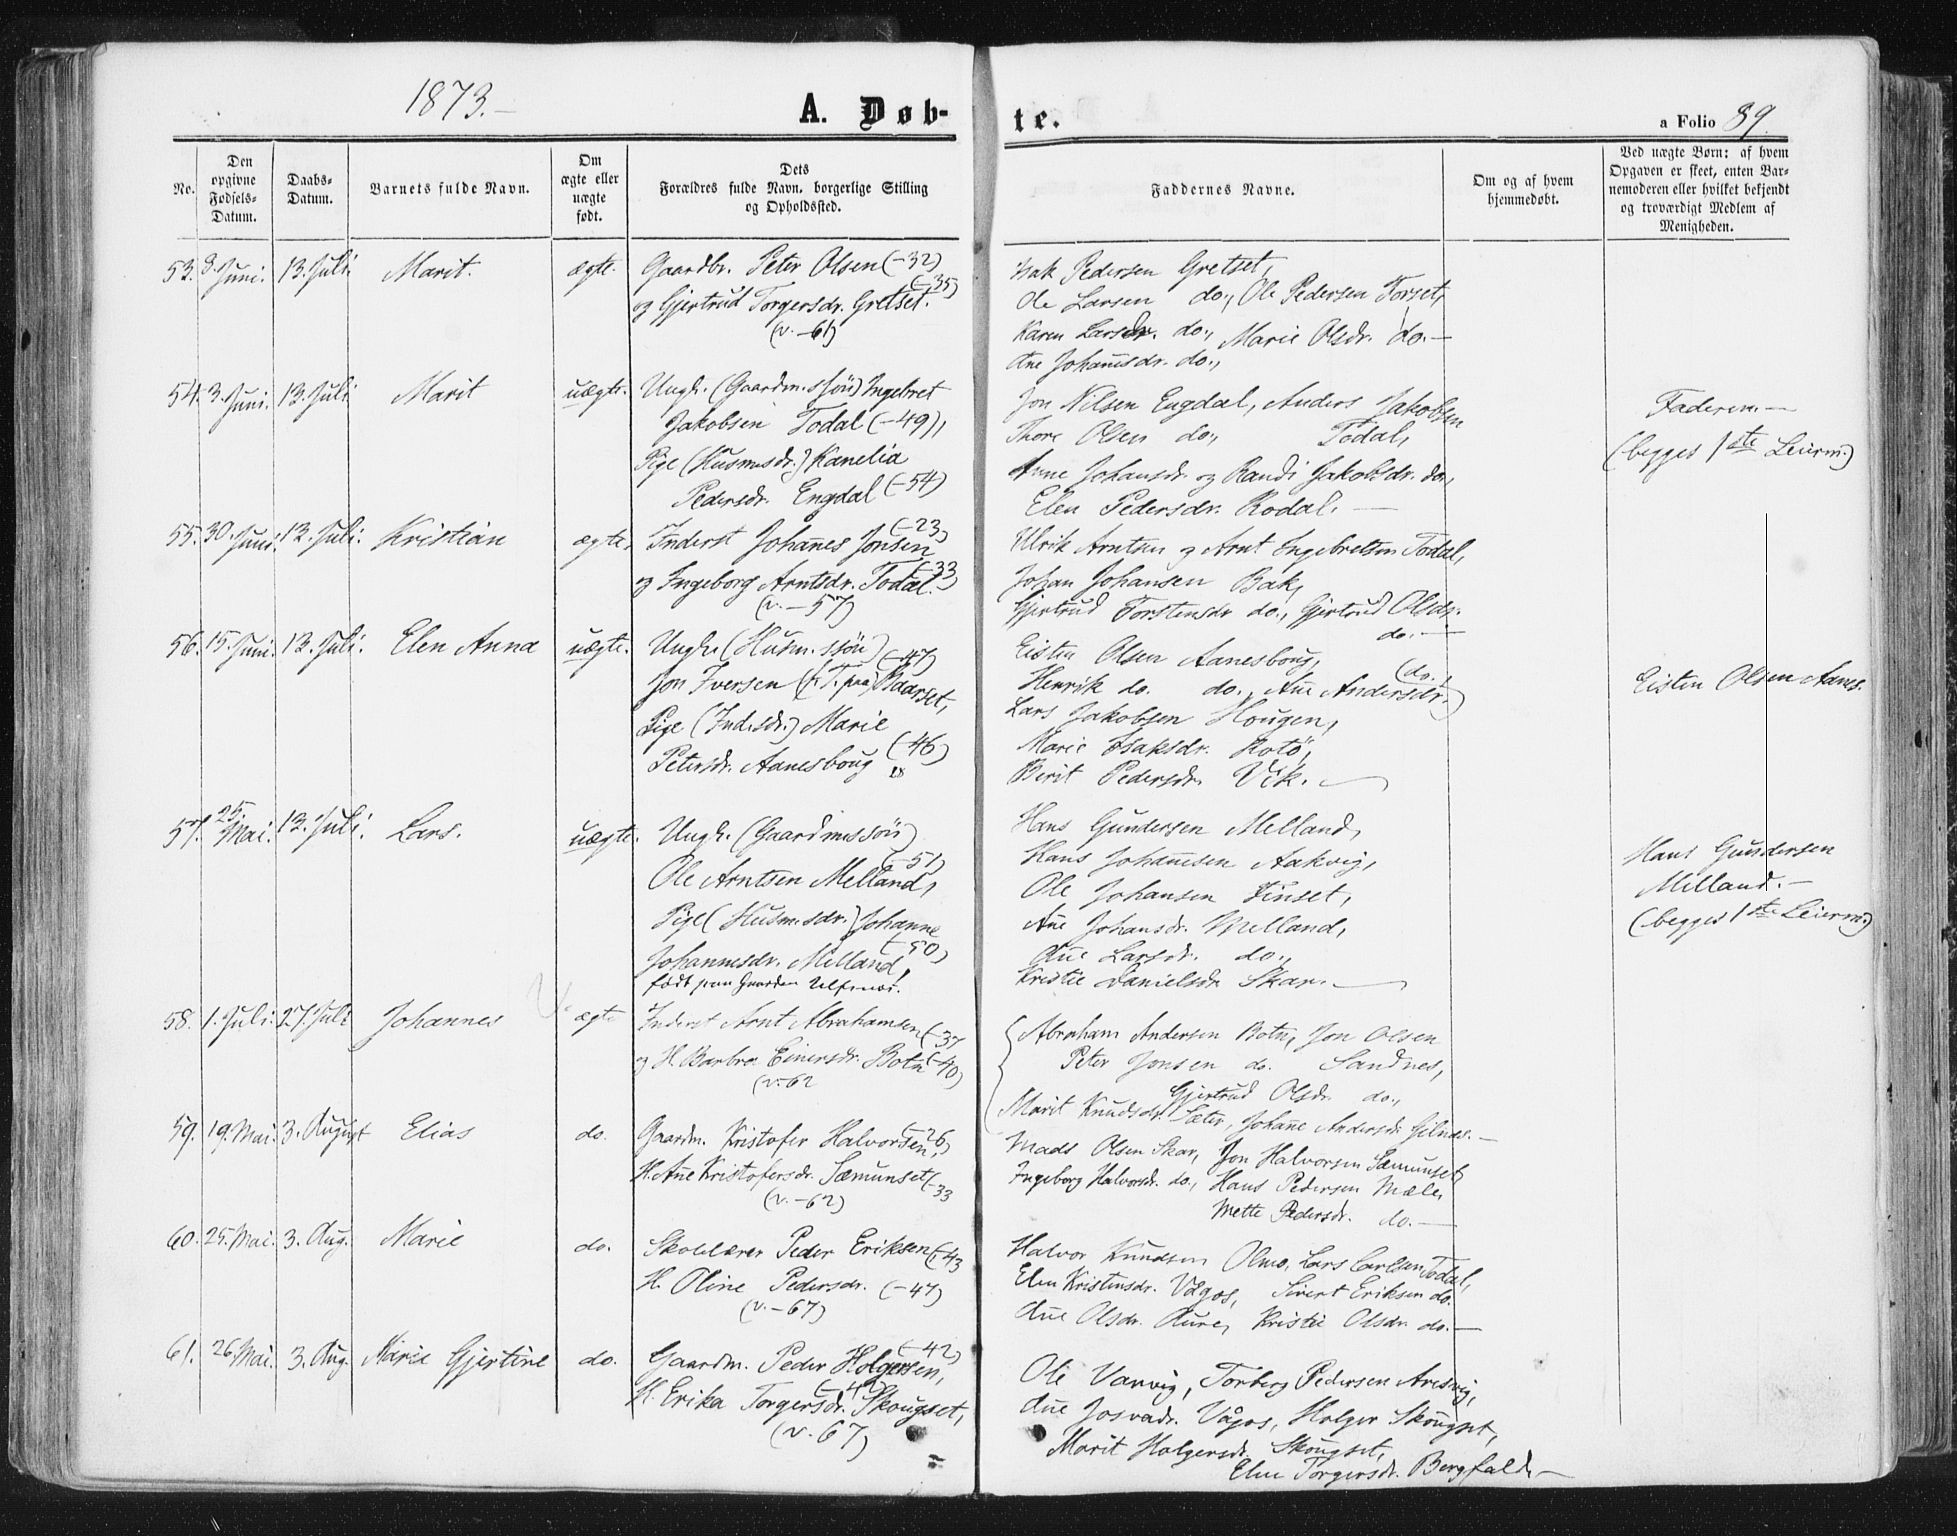 1873.-
A. Døb-
te.
a Folio 89.
No.
Den opgivne Fødsels-Datum.
Daabs-Datum.
Barnets fulde Navn.
Om ægte eller uægte født.
Dets Forældres fulde Navn, borgerlige Stilling og Opholdssted.
Faddernes Navne.
Om og af hvem hjemmedøbt.
Ved uægte Børn: af hvem Opgaven er skeet, enten Barnemoderen eller hvilket bekjendt og troværdigt Medlem af Menigheden.
53. 8. Juni. 13. Juli. Marit. ægte. Gaardbr. Peter Olsen (-32)
og Gjertrud Torgersdr. Gretset. (-35)
(v. -61)
Isak Pedersen Gretset,
Ole Larsen do., Ole Pedersen Torset,
Karen Larsdr. do., Marie Olsdr. do.-
Ane Johansdr. do.,
54. 3. Juni. 13. Juli. Marit uægte. Ungk. (Gaardm.ssøn) Ingebret
Jakobsen Todal (-49),
Pige (Husmdsdr.) Kanelia
Pedersdr. Engdal (-54)
Jon Nilsen Engdal, Anders Jakobsen
Thore Olsen do., Todal,
Anne Johansdr. og Randi Jakobsdr. do.,
Elen Pedersdr. Rodal. -
Faderen.-
(begges 1ste Leierm.)
55. 30. Juni. 13. Juli. Kristian ægte. Inderst Johanes Jonsen (-23)
og Ingeborg Arntsdr. Todal. (-33)
(v. -57)
Ulrik Arntsen og Arnt Ingebretsen Todal,
Johan Johansen Bak,
Gjertrud Torstensdr do., Gjertrud Olsdr.
do.-
56. 15. Juni. 13. Juli. Elen Anna uægte. Ungk. (Husm.ssøn)
Jon Iversen (f.T. paa) Baarset, (-47)
Pige (Ind.sdr.) Marie
Petersdr. Aanesboug (-46)
Eisten Olsen Aanesboug,
Henrik do. do., Ane Andersdr. (do.)
Lars Jakobsen Hougen,
Marie Isaksdr. Rotø,
Berit Pedersdr. Vik. -
Eisten Olsen Aanes.
57. 25. Mai. 13. Juli. Lars. uægte. Ungk. (Gaardmdssøn)
Ole Arntsen Melland, (-51)
Pige (Husm.sdr.) Johanne
Johannesdr. Melland, (-50)
født paa Gaarden Ulfsnes.
Hans Gundersen Melland,
Hans Johannesen Aakvig,
Ole Johansen Finset,
Ane Johansdr. Melland,
Ane Larsdr. do.,
Kristie Danielsdr Skar. -
Hans Gundersen
Melland.-
(begges 1ste Leierm.)
58. 1. Juli. 27. Juli Johannes ægte Inderst Arnt Abrahamsen (-37
og H. Barbro Einersdr. Botn (-40)
(v.-62
Abraham Andersen Botn, Jon Olsen
Peter Jonsen do. Sandnes,
Gjertrud Olsdr. do.,
Marit Knudsdr. Sæter, Johane Andersdr.
59. 19. Mai. 3. August Elias do. Gaardm. Kristofer Halvorsen, (-26)
H. Ane Kristofersdr. Sæmunset (-33
(v.-62)
Mads Olsen Skar, Jon Halvorsen Sæmunset,
Ingeborg Halvorsdr. do., Hans Pedersen Mæle,
Mette Pedersdr. do.-
60. 25. Mai. 3. Aug. Marie do. Skolelærer Peder Eriksen (-43
H. Oline Pedersdr. (-47)
(v.-67)
Halvor Knudsen Olmo, Lars Carlsen Todal,
Elen Kristensdr. Vågos, Sivert Eriksen do.
Ane Olsdr. Aure, Kristie Olsdr. do.-
61. 26. Mai. 3. Aug. Marie Gjertine do. Gaardm. Peder Holgersen, (-42)
H. Erika Torgersdr. Skougset,
(v.-67)
Ole Varvig, Torberg Pedersen Aresvig,
Ane Josvadr. Vågos, Holger Skougset,
Marit Holgersdr. Skougset,
Elen Torgersdr. Bergfald.-